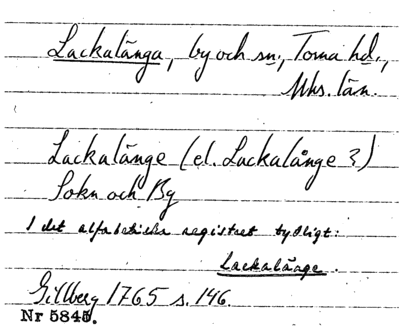 Lackalänga, by och sn., Torna hd.,
Mhs. län.
Lackalänge (el. Lackalånge?)
Sokn och By
I det alfabetiska registret tydligt:
Lackalänge.
Gillberg 1765 s. 146.
Nr 5845.